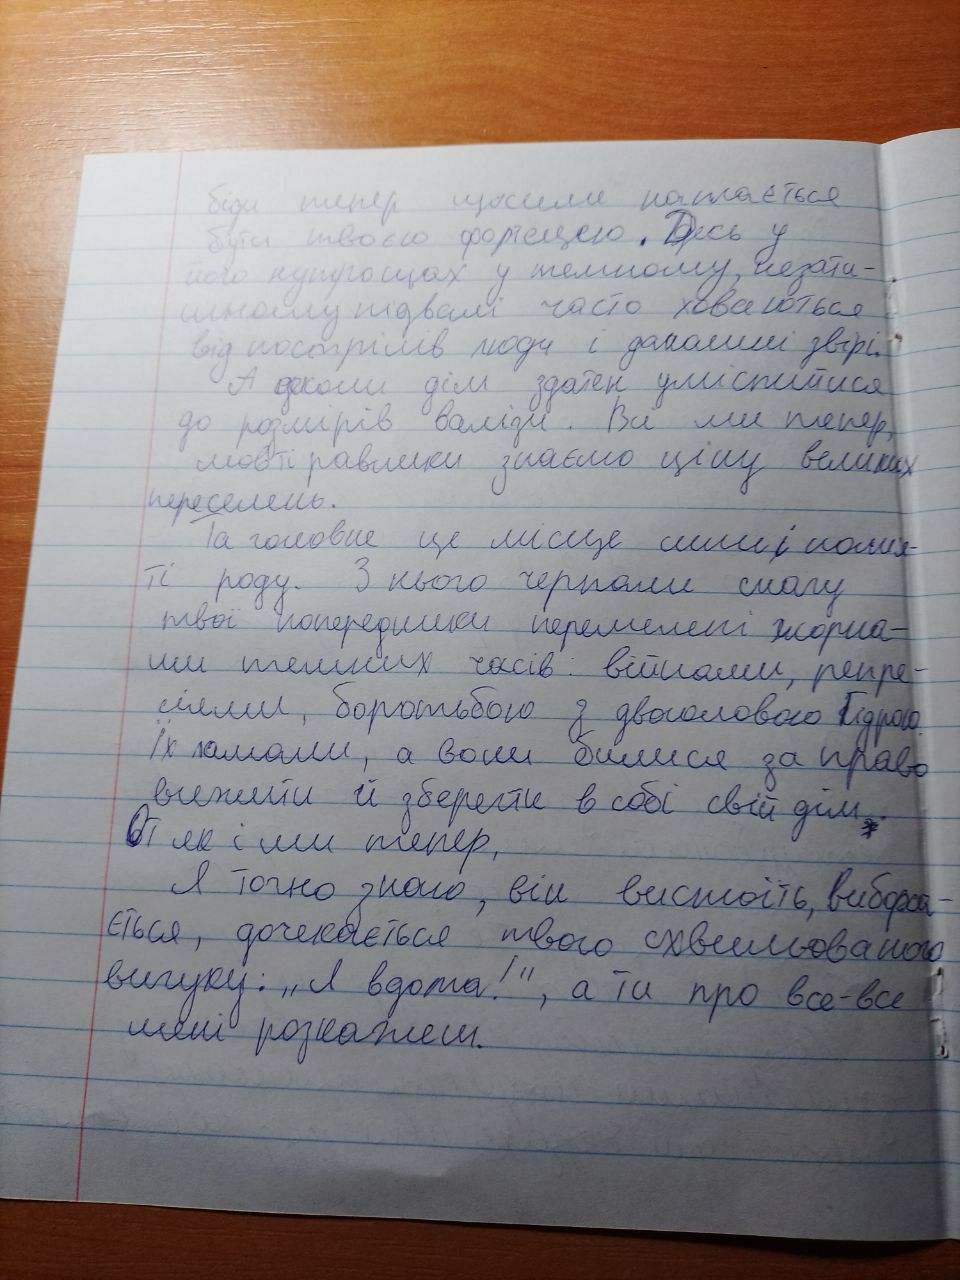 біди тепер щосили намагається
бути твоєю фортецею. Десь у
його нутрощах у темному, незати-
шному підвалі часто ховаються
від пострілів люди і домашні звірі.
А деколи дім здатен уміститися
до розмірів валізи. Всі ми тепер,
мовті равлики знаємо ціну великих
переселень.
Та головне це місце сили і памя-
ті роду. З нього черпали снагу
твої попередники перемелені жорна-
ми темних часів: війнами, репре-
сіями, боротьбою з двоголовою Гідрою.
Їх ламали, а вони билися за право
вижити й зберегти в собі свій дім.
От як і ми тепер,
Я точно знаю, він вистоїть, виборса-
ється, дочекається твого схвильованого
вигуку: „Я вдома!", а ти про все-все
мені розкажеш.